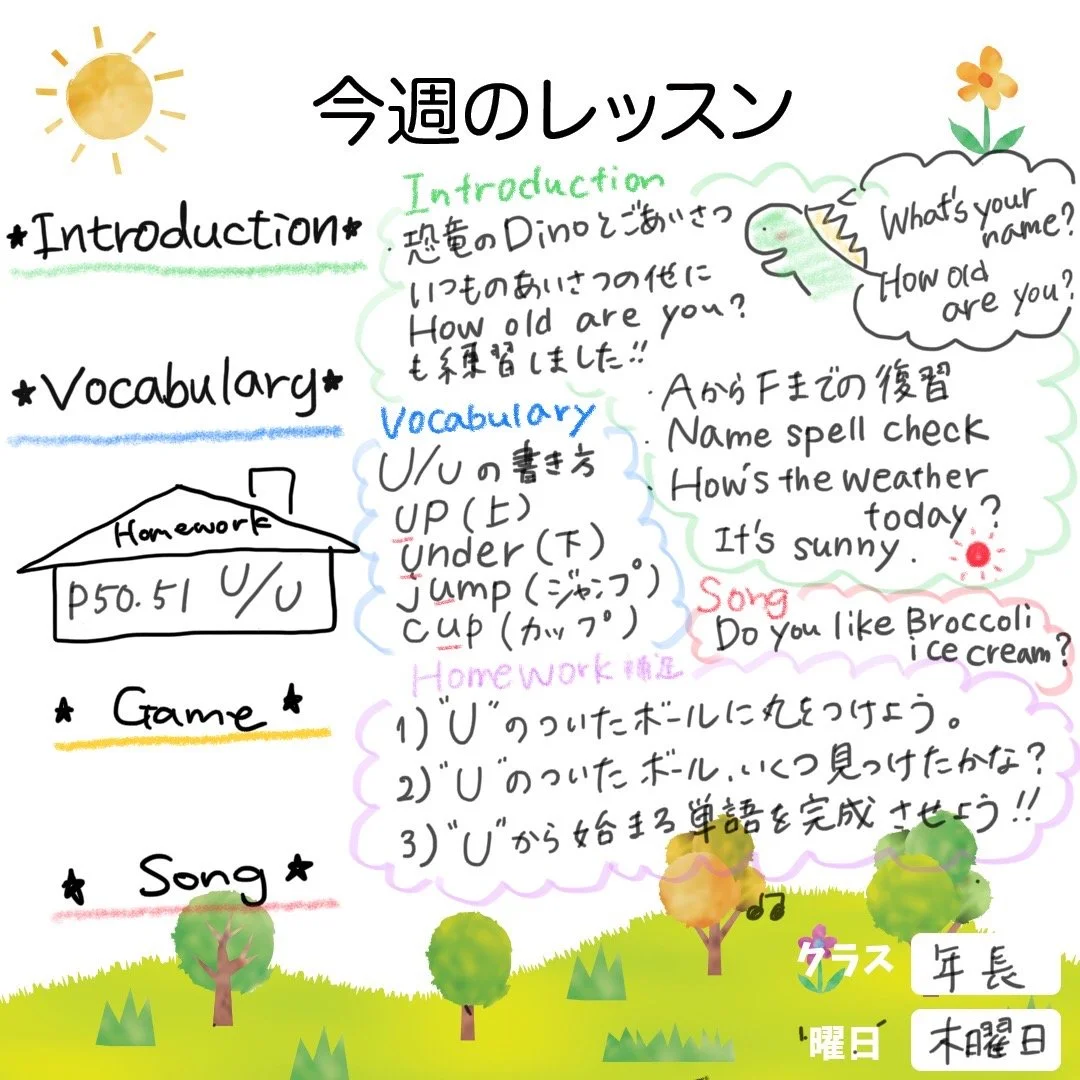 今週のレッスン
*Introduction*
*Vocabulary*
Homework
P50.51 U/u
* Game *
* Song *
Introduction
・恐竜のDinoとごあいさつ
いつものあいさつの他に
How old are you?
も練習しました!!
What's your
name?
How old
are you?
・AからFまでの復習
・Name spell check
・How's the weather
today?
It's sunny.
Vocabulary
U/uの書き方
up(上)
under(下)
jump(ジャンプ)
cup(カップ)
Song
Do you like Broccoli
ice cream?
Homework 補足
1)"U"のついたボールに丸をつけよう。
2)"U"のついたボール、いくつ見つけたかな?
3)"U"から始まる単語を完成させよう!!
クラス 年長
曜日 木曜日